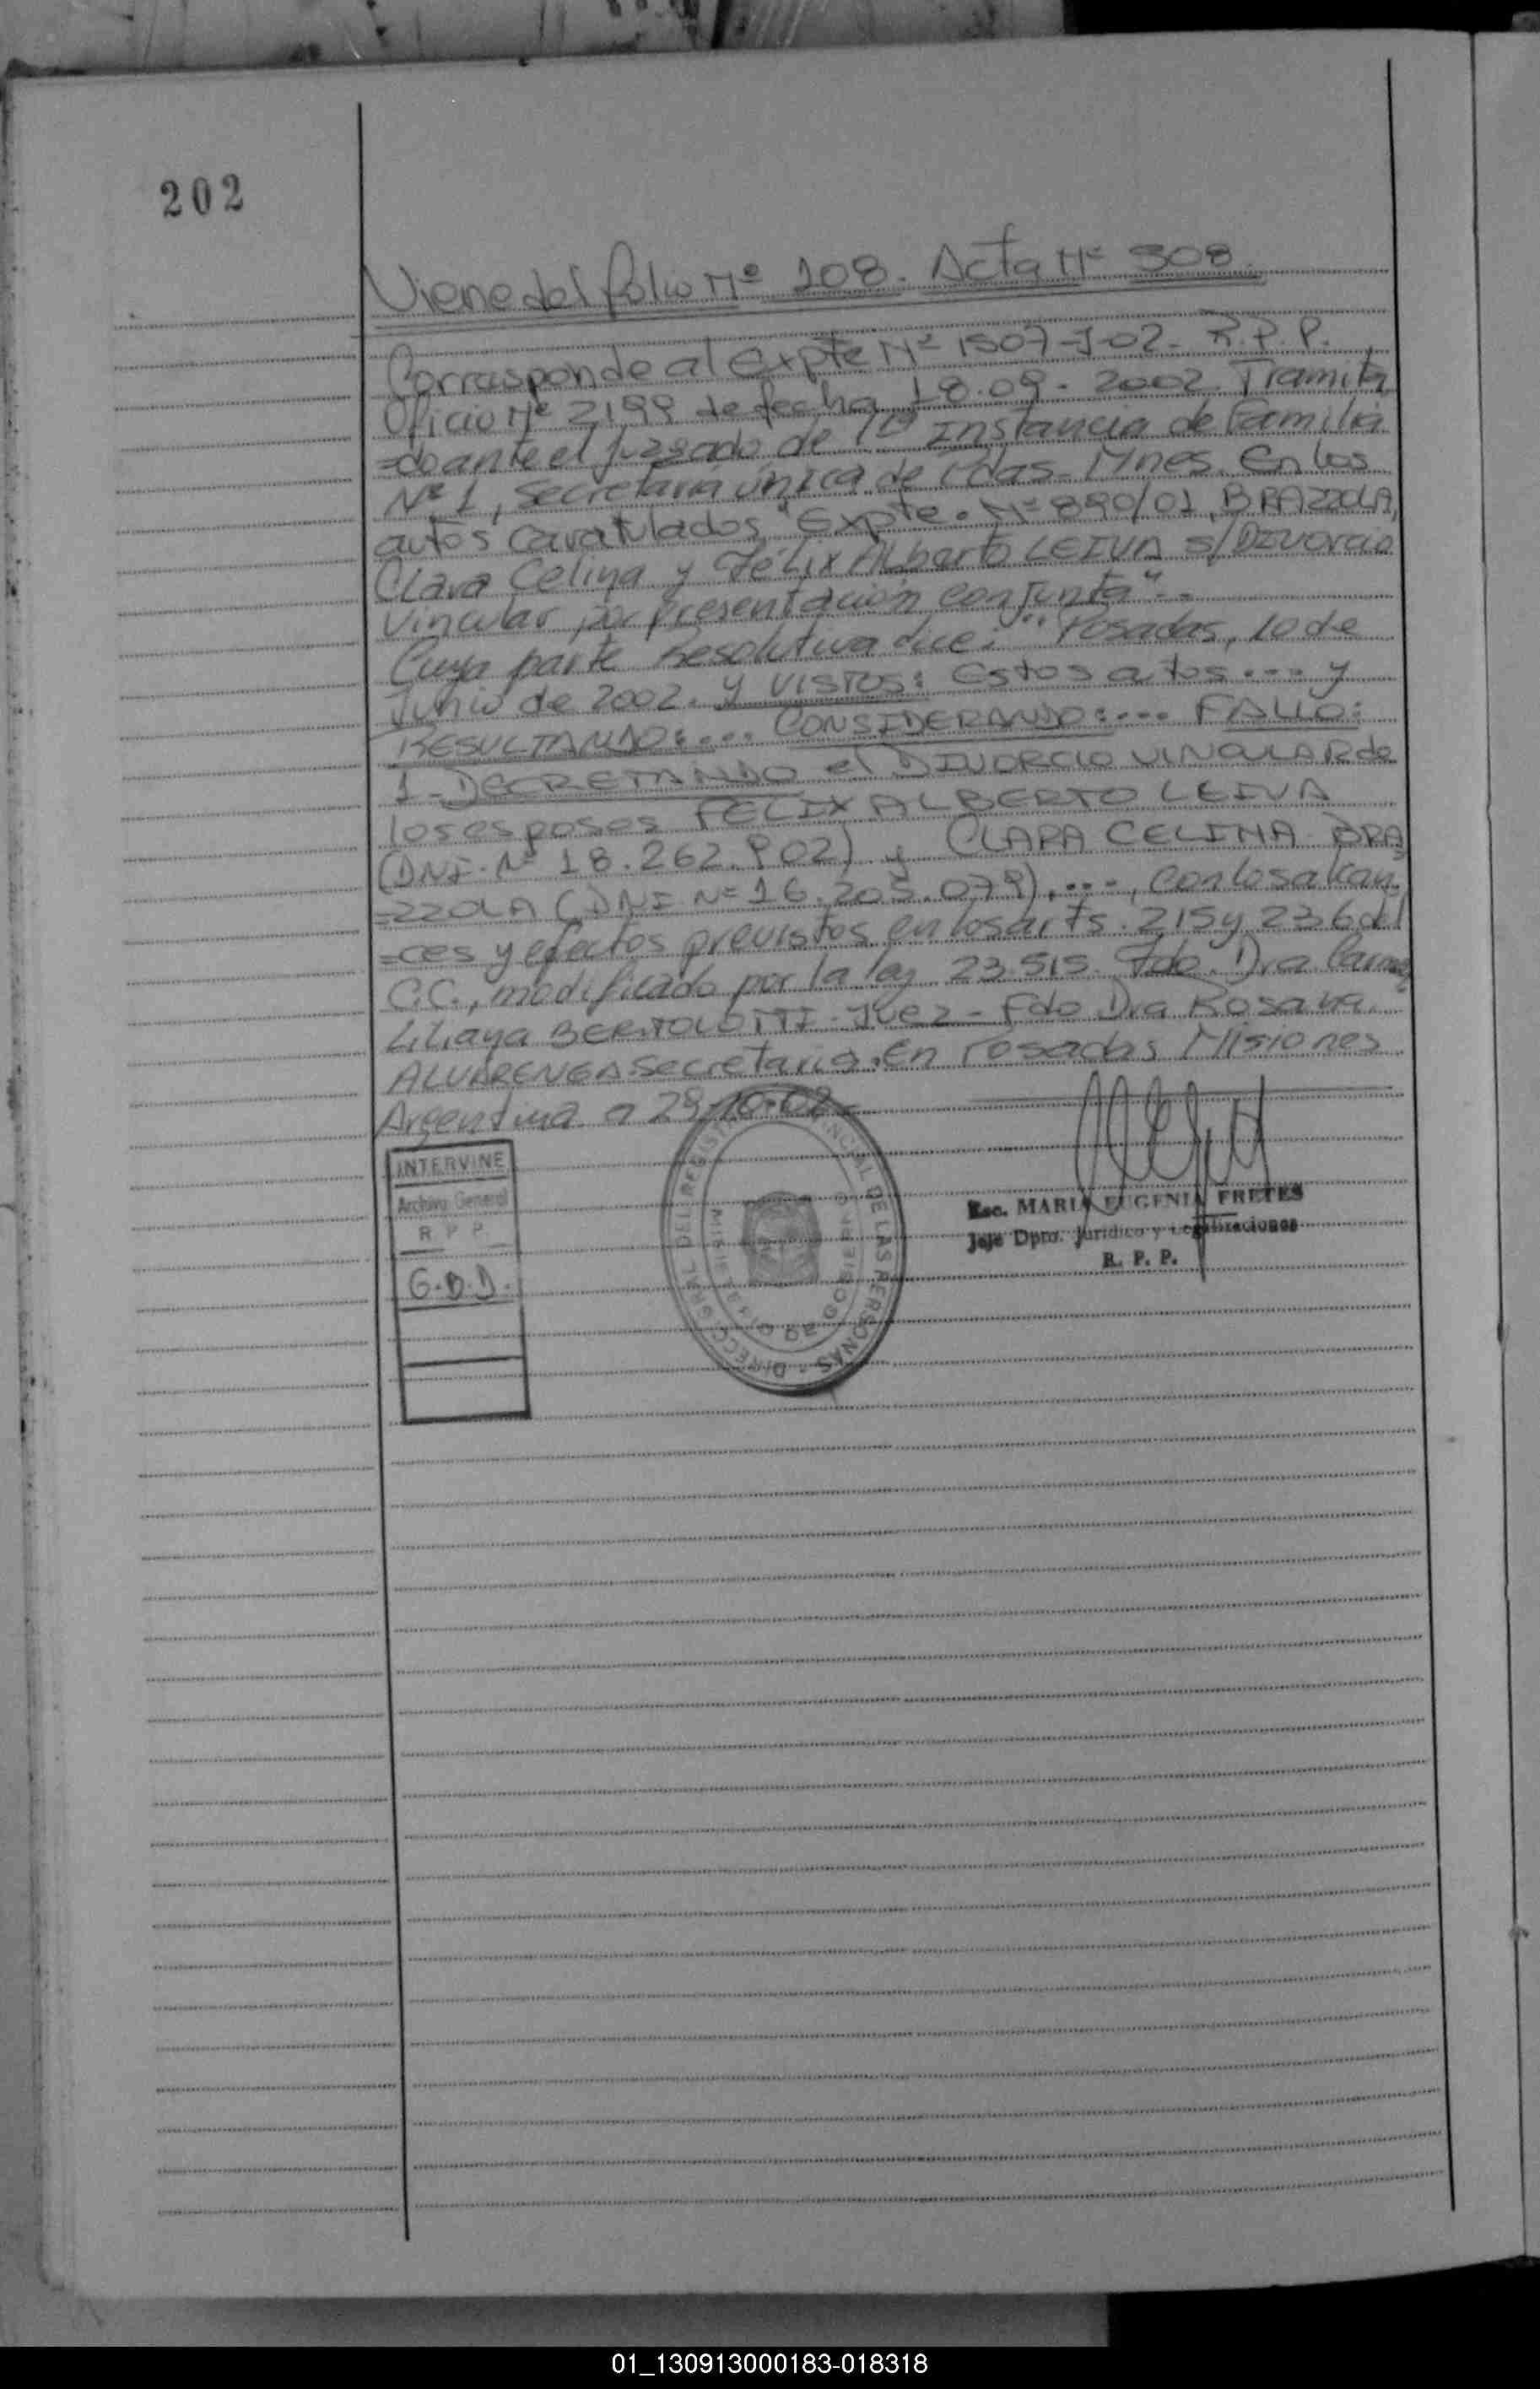 202
Viene del folio Nº 108. Acta Nº 308.
Corresponde al Expte Nº 1507-J-02- R.P.P.
Oficio Nº 2199 de fecha 18.09.2002. Tramita
=do ante el Juzgado de 1ra Instancia de Familia
Nº 1, Secretaria Única de Pdas- Mnes. En los
autos caratulados "Expte. Nº 890/01, BRAZZOLA,
Clara Celina y Félix Alberto LEIVA S/Divorcio
Vincular por presentación conjunta".-
Cuya parte Resolutiva dice: "Posadas, 10 de
Junio de 2002. Y VISTOS: Estos autos.... y
RESULTANDO:.... CONSIDERANDO:.... FALLO:
1- DECRETANDO el DIVORCIO VINCULAR de
los esposos FELIX ALBERTO LEIVA
(DNI. Nº 18.262.902) y CLARA CELINA BRA
=ZZOLA (DNI Nº 16.205.079),...., con los alcan
=ces y efectos previstos en los arts. 215 y 236 del
C.C., modificado por la ley 23.515. Fdo. Dra
Liliana BERTOLOTTI- Juez- Fdo Dra Rosana
ALVARENGA Secretaria. En Posadas Misiones
Argentina a 29-10-02-
INTERVINE
Archivo General
R P P
G.D.D.
DIRECCION GRAL DEL REGISTRO PROVINCIAL DE LAS PERSONAS -
MINISTERIO DE GOBIERNO
Esc. MARIA EUGENIA FRETES
Jefe Dpto. Jurídico y Legalizaciones
R. P. P.
01_130913000183-018318